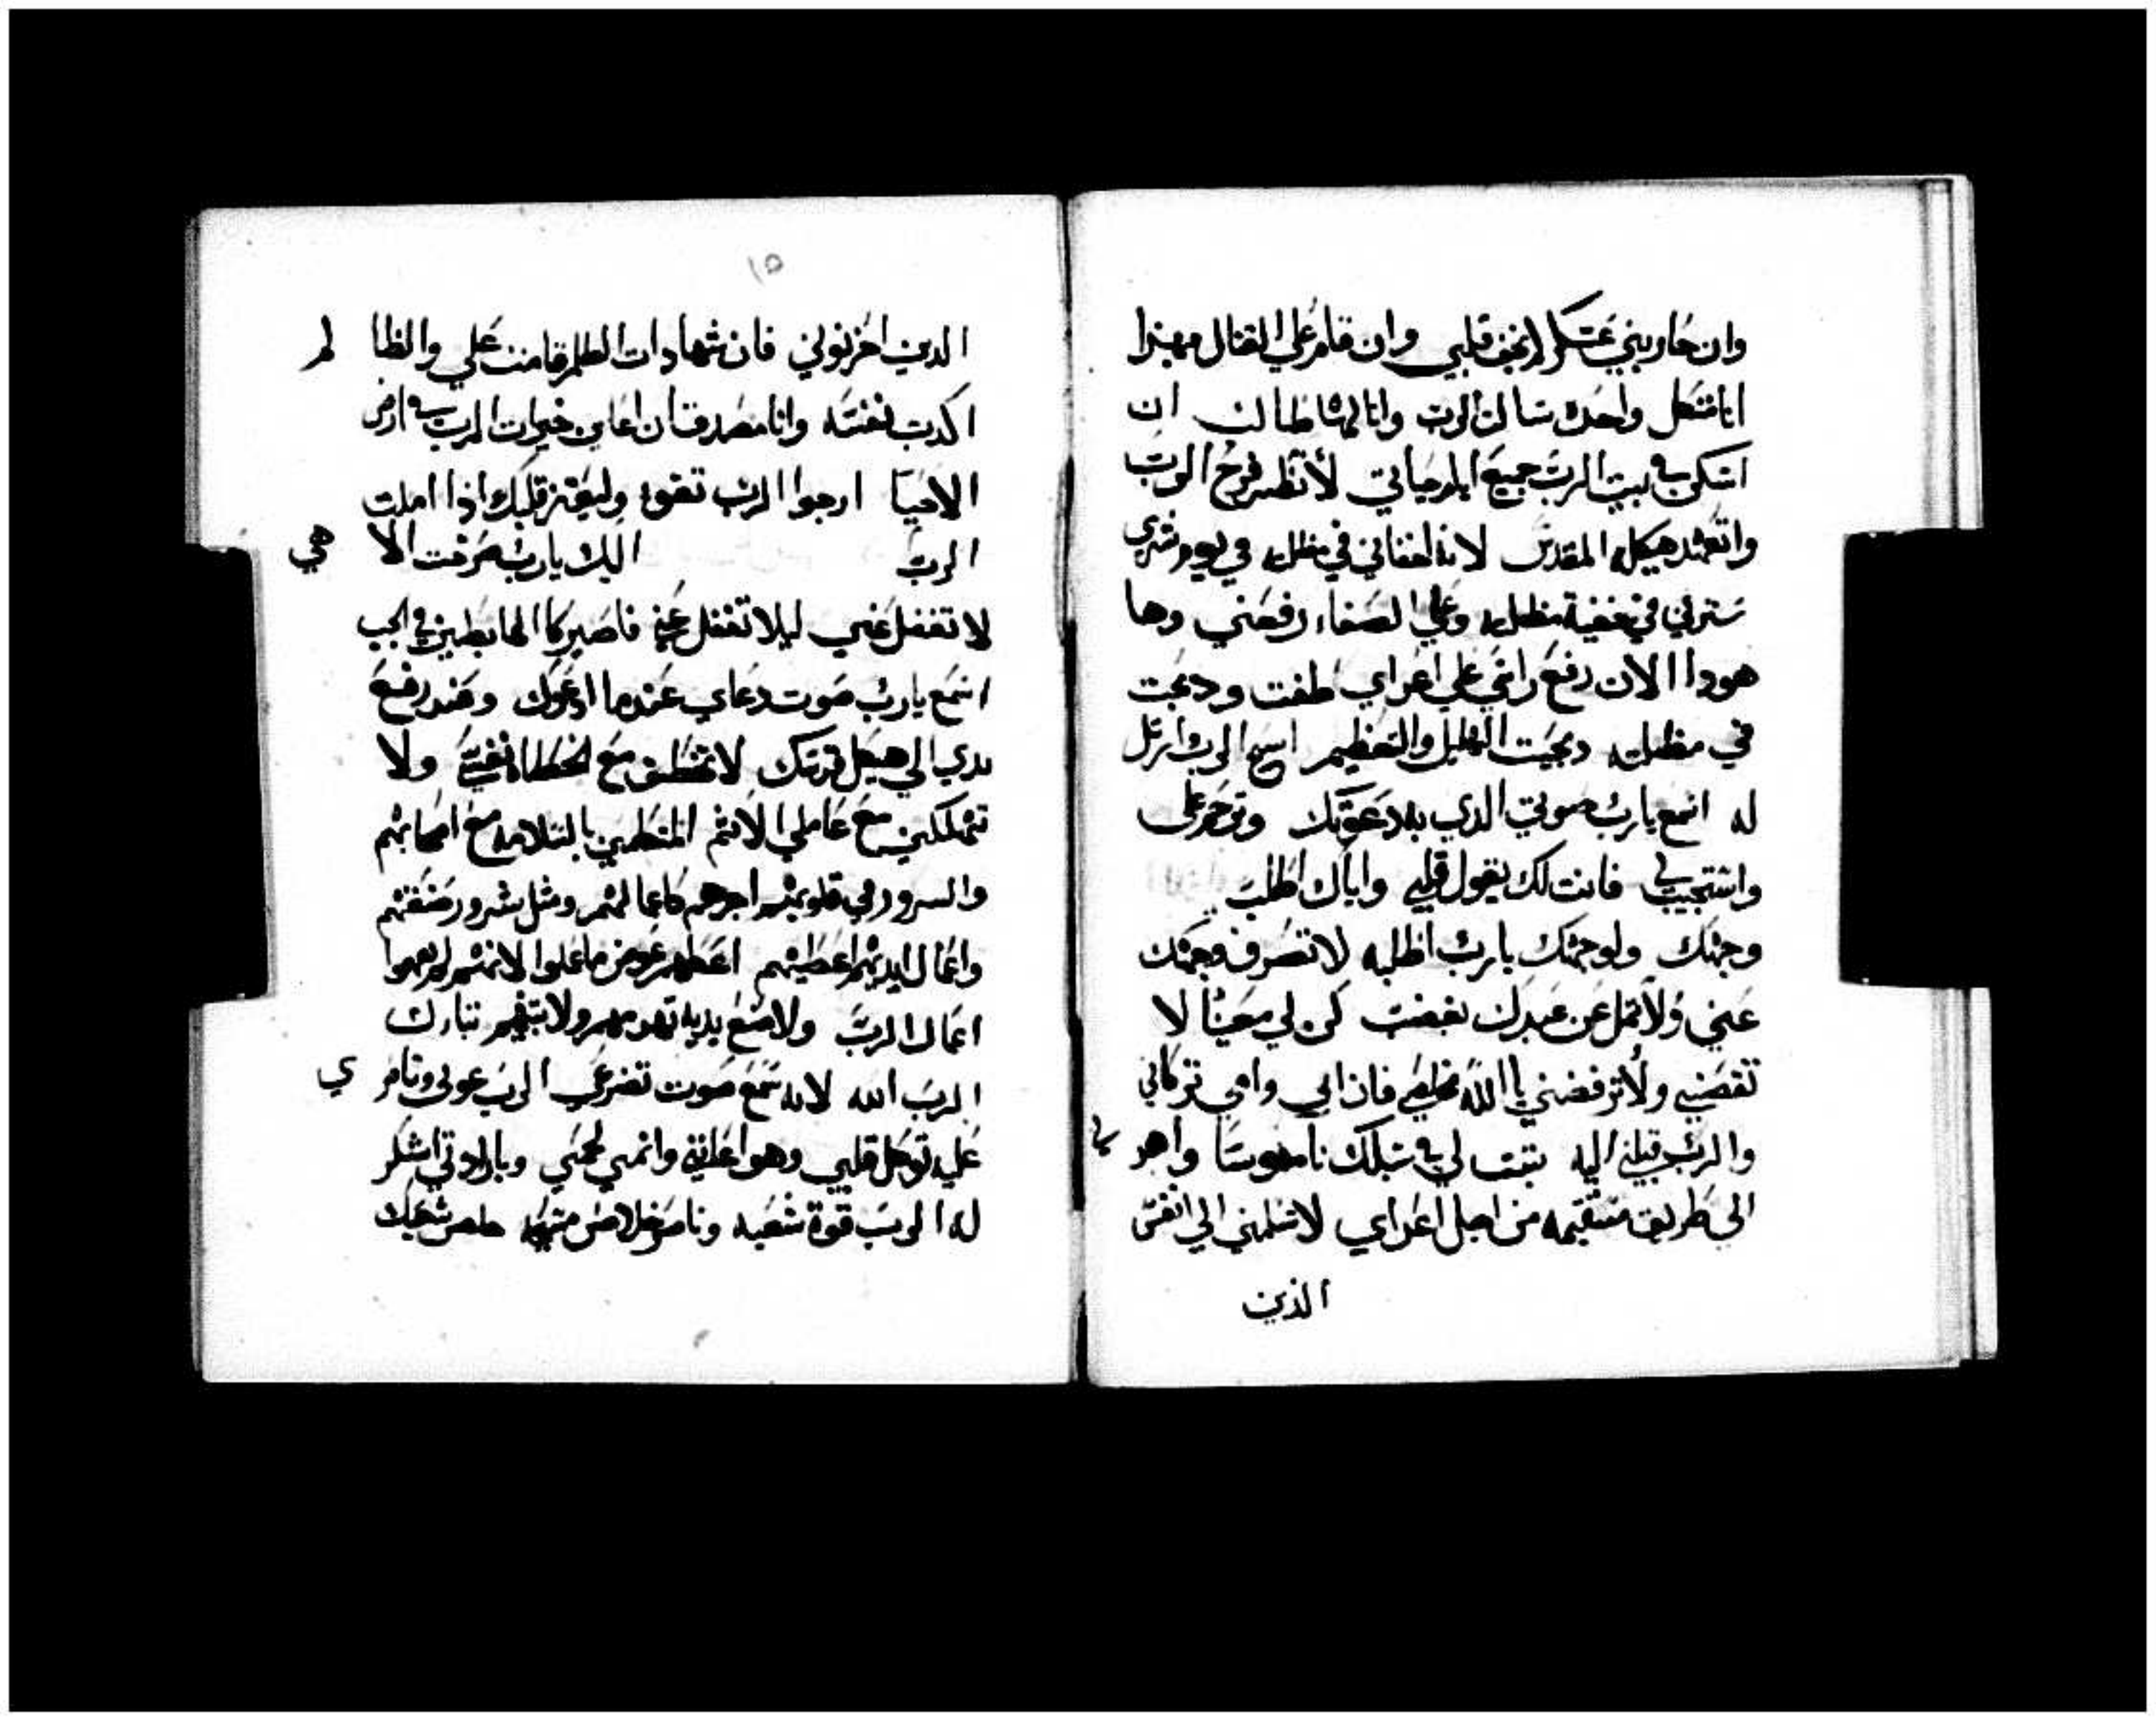 وان حاربني عسكر لا يخف قلبي وان قام علي القتال فبهذا
انا متكل واحده سالت الرب وانا لها طالب ان
اسكن في بيت الرب جميع ايام حياتي لأنظر فرح الرب
واتعهد هيكله المقدس لانه اخفاني في مظلته في يوم شري
سترني في خفية مظلته وعلي الصفاه رفعني وها
هودا الان رفع راسي علي اعداي طفت ودبحت
في مظلته دبحيت التهليل والتعظيم اسبح الرب وارتل
له اسمع يارب صوتي الدي به دعوتك وترحم علي
واستجيب لي فانت لك يقول قلبي واياك اطلب
وجهك ولوجهك يارب اطلبه لا تصرف وجهك
عني ولا تمل عن عبدك بغضب كن لي معينًا لا
تقصني ولا ترفضني يا الله مخلصي فان ابي وامي تركاني
والرب قبلني اليه تبت لي في سبلك ناموسا واهد ني
الي طريق مستقيمه من اجل اعداي لا تسلمني الي انفس
الذين
١٥
الدين احزنوني فان شهادات الظلم قامت علي والظا لم
اكدب نفسه وانا مصدق ان اعاين خيرات الرب في ارض
الاحيا ارجوا الرب تقوه وليعتز قلبك اذا املت
الرب اليك يارب صرخت الا هي
لا تغفل عني ليلا تغفل عني فاصير كالهابطين في الجب
اسمع يارب صوت دعاي عندما ادعوك وعند رفع
يدي الي هيكل قدسك لا تحطف مع الخطاه نفسي ولا
تهلكني مع عاملي الاثم المتكلمين بالسلامه مع اصحابهم
والشرور في قلوبهم اجزهم كاعمالهم ومثل شرور صنعتهم
واعمال ايديهم اعطيهم اعطهم عوض ماعملوا لانهم لم يفهموا
اعمال الرب ولا صنع يديه تهدمهم ولا تبنيهم تبارك
الرب الله لانه سمع صوت تضرعي الرب عوني وناصر ي
عليه توكل قلبي وهو اعانني وانمي لحمي وبارادتي اشكر
له الرب قوة شعبه وناصر خلاص مسيحه خلص شعبك